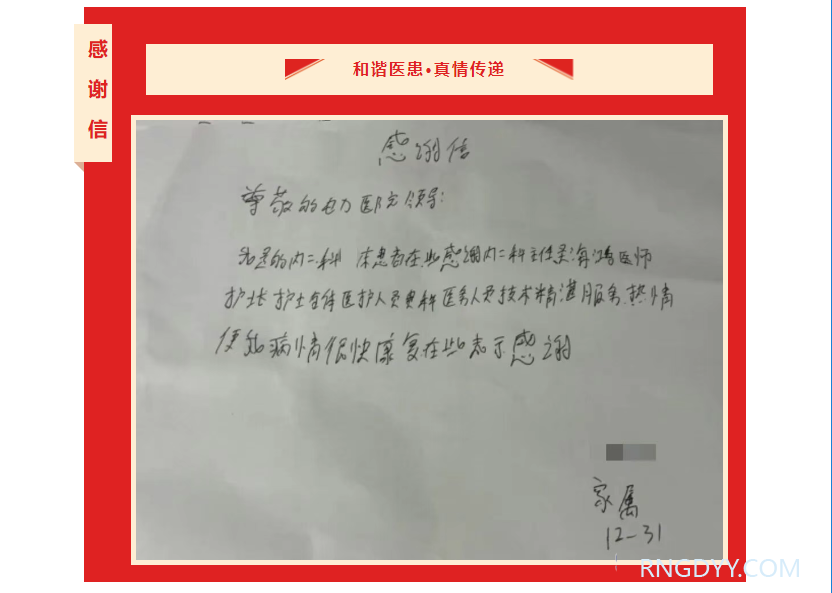 感
谢
信
和谐医患•真情传递
感谢信
尊敬的电力医院领导:
我是的内二科 本患者在此感谢内二科主任 海鸿医师
护士长 护士全体医护人员 科医务人员技术精湛服务热情
使我病情很快康复在此表示感谢
家属
12-31
RNGDYY.COM